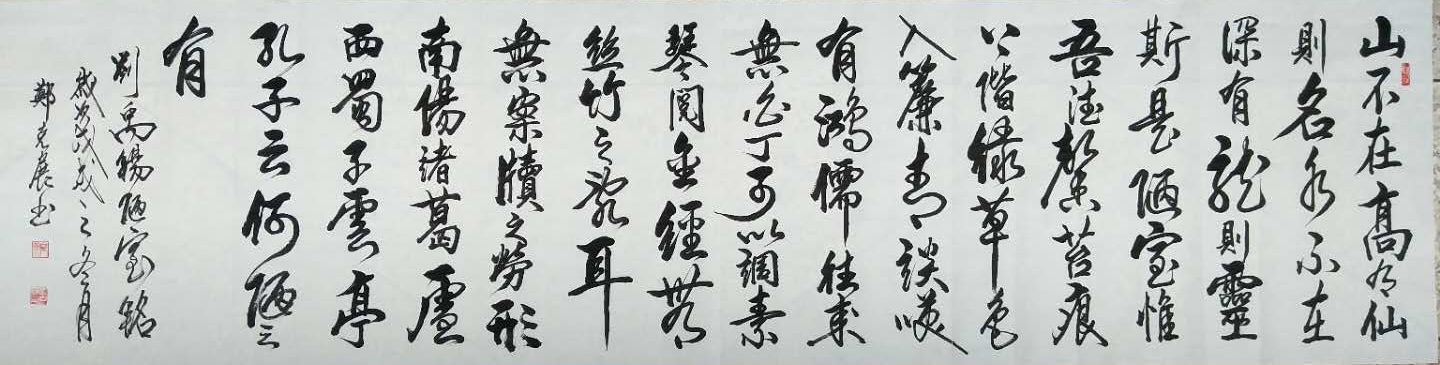 山不在高有仙
則名水不在
深有龍則靈
斯是陋室惟
吾德馨苔痕
上階綠草色
入簾青談笑
有鴻儒往來
無白丁可以調素
琴閱金經無
絲竹之亂耳
無案牘之勞形
南陽諸葛廬
西蜀子雲亭
孔子云何陋之
有
劉禹錫陋室銘
歲次戊戌之冬月
鄭克展書